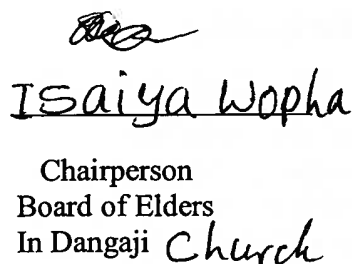 Isaiya Wopha
Chairperson
Board of Elders
In Dangaji Church